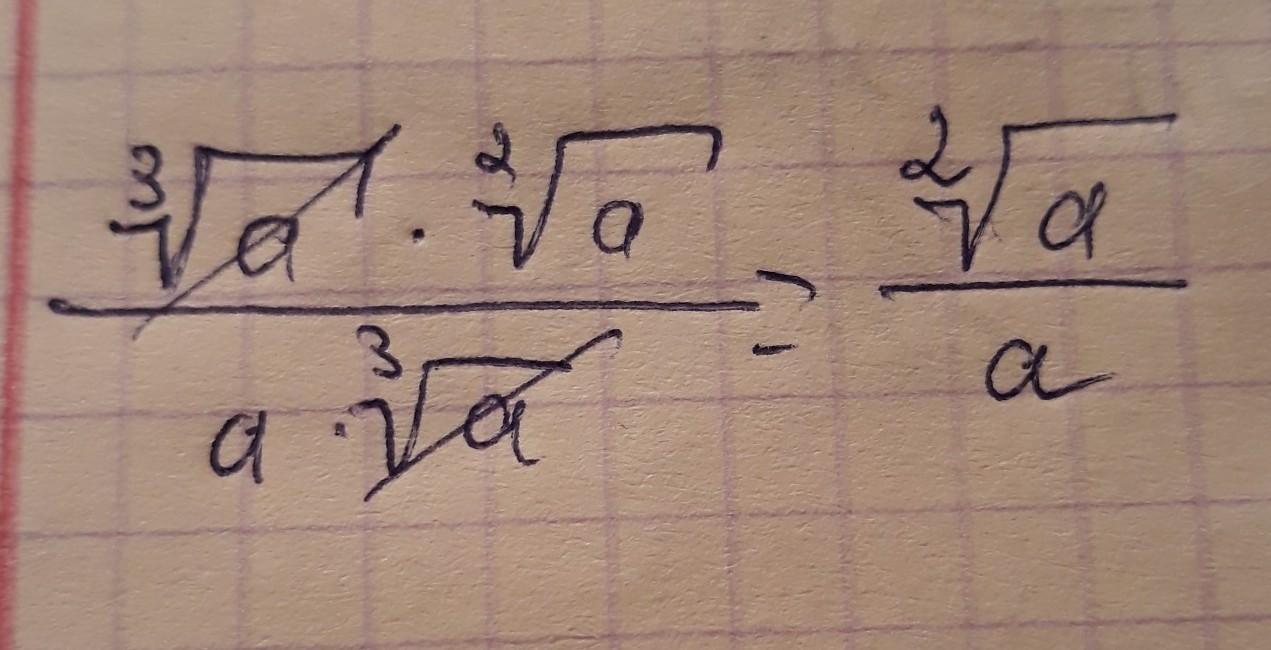 ∛a · ²√a / a · ∛a = ²√a / a